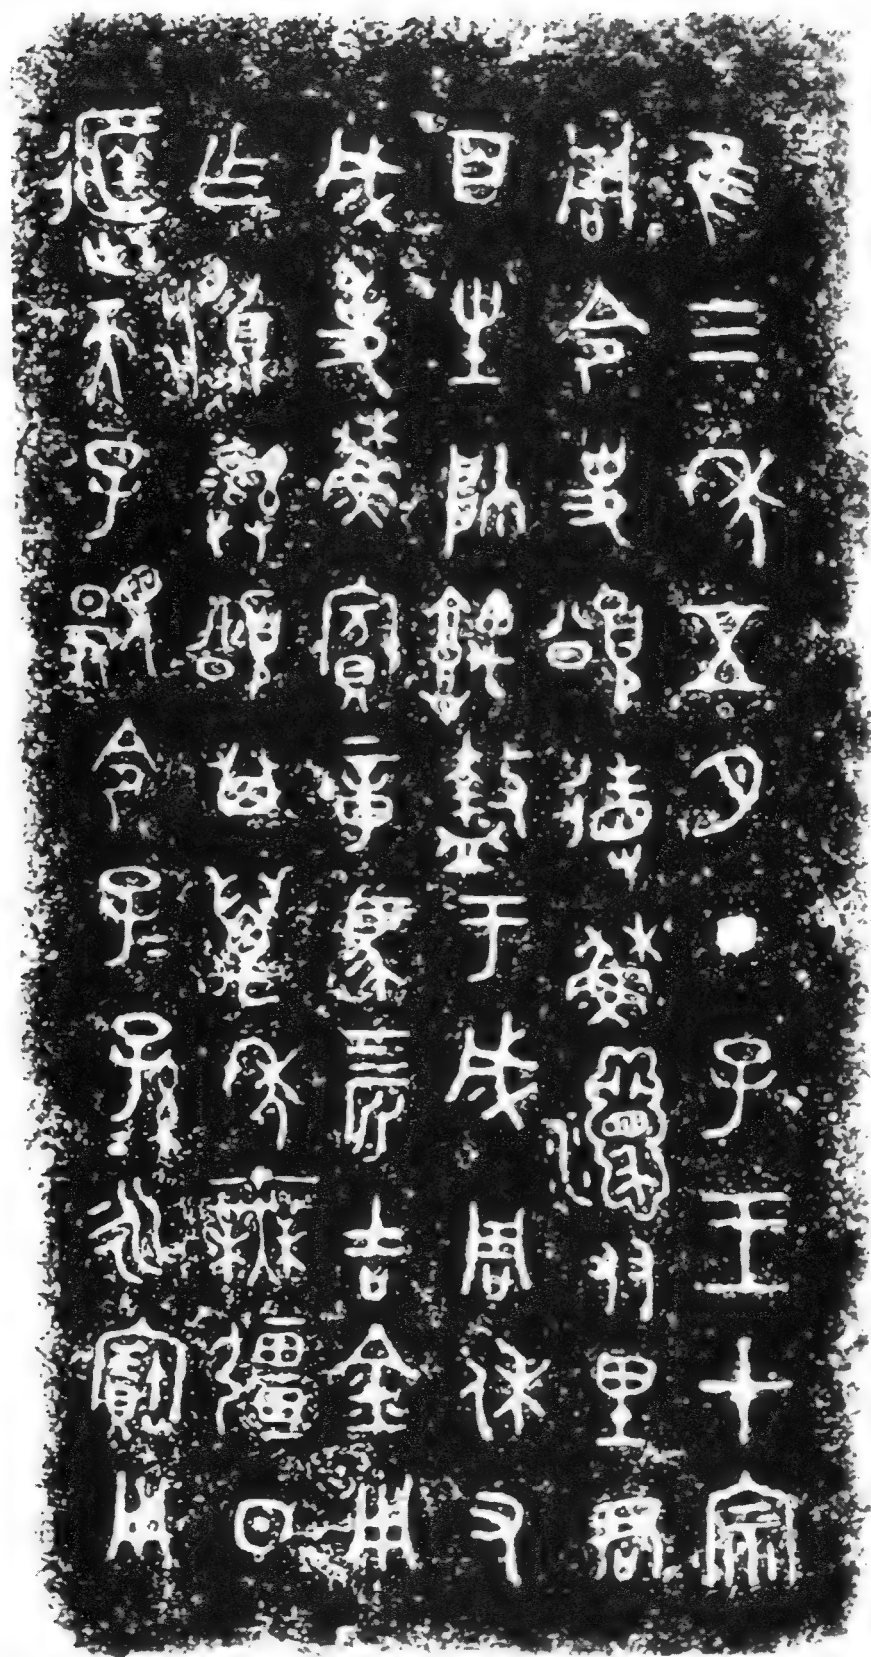 隹三年五月丁子王才宗
周令史頌𢓊穌友里君
百生帥堣盩于成周休又
成事穌賓章馬亖匹吉金用
乍𩰬彝頌其萬年無疆日
𨒅天子𩁹令子=孫=永寶用